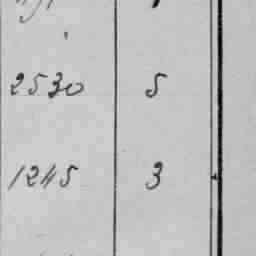 2530 5
1245 3